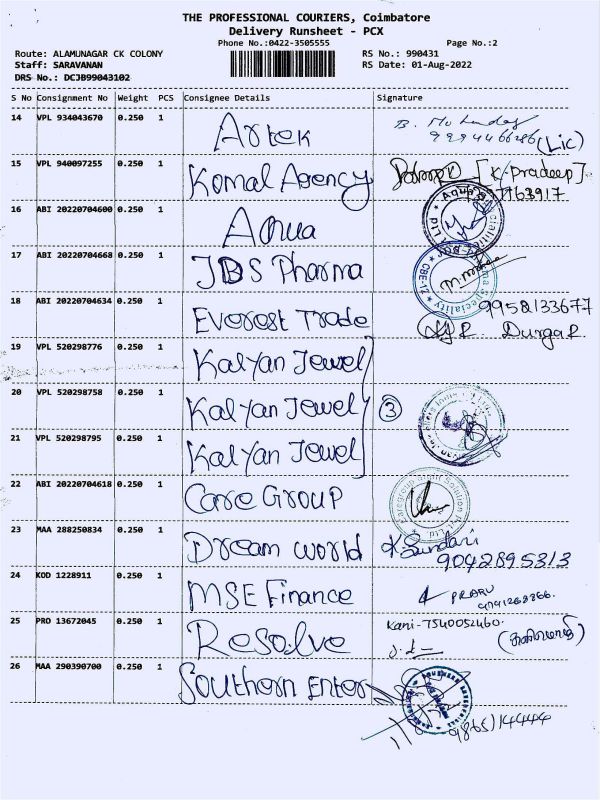 THE PROFESSIONAL COURIERS, Coimbatore
Delivery Runsheet - PCX
Phone No.:0422-3505555 Page No.:2
Route: ALAMUNAGAR CK COLONY RS No.: 990431
Staff: SARAVANAN RS Date: 01-Aug-2022
DRS No.: DCJB99043102
S No Consignment No Weight PCS Consignee Details Signature
14 VPL 934043670 0.250 1 Artek (Lic)
15 VPL 940097255 0.250 1 Komal Agency [K. Pradeep]
16 ABI 20220704600 0.250 1 Aqua
17 ABI 20220704668 0.250 1 JBS Pharma
18 ABI 20220704634 0.250 1 Everest Trade 9958133677
Durga R.
19 VPL 520298776 0.250 1 Kalyan Jewel
20 VPL 520298758 0.250 1 Kalyan Jewel 3
21 VPL 520298795 0.250 1 Kalyan Jewel
22 ABI 20220704618 0.250 1 Care Group
23 MAA 288250834 0.250 1 Dream world K. Sundari
9042895313
24 KOD 1228911 0.250 1 MSE Finance PRABU
25 PRO 13672045 0.250 1 Resolve Kani-7540052460.
26 MAA 290390700 0.250 1 Southern Enter